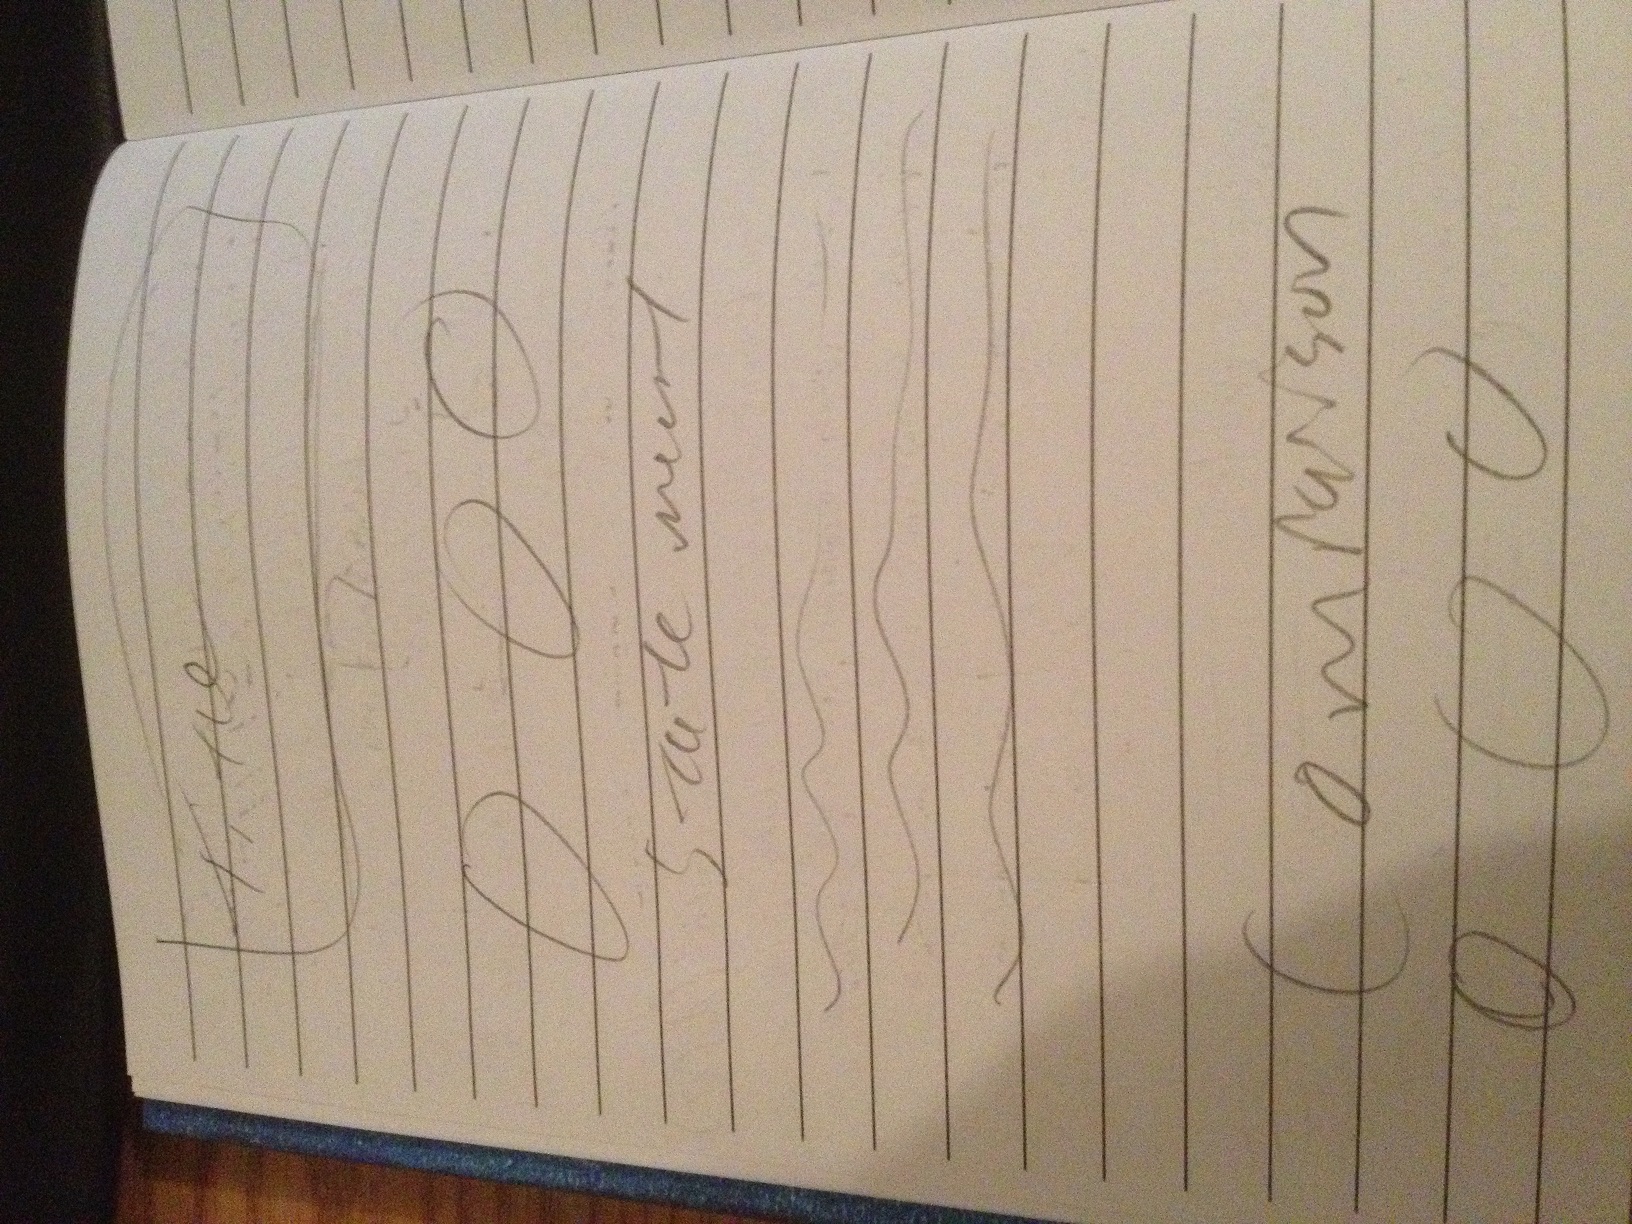 Title
Statement
Comparison